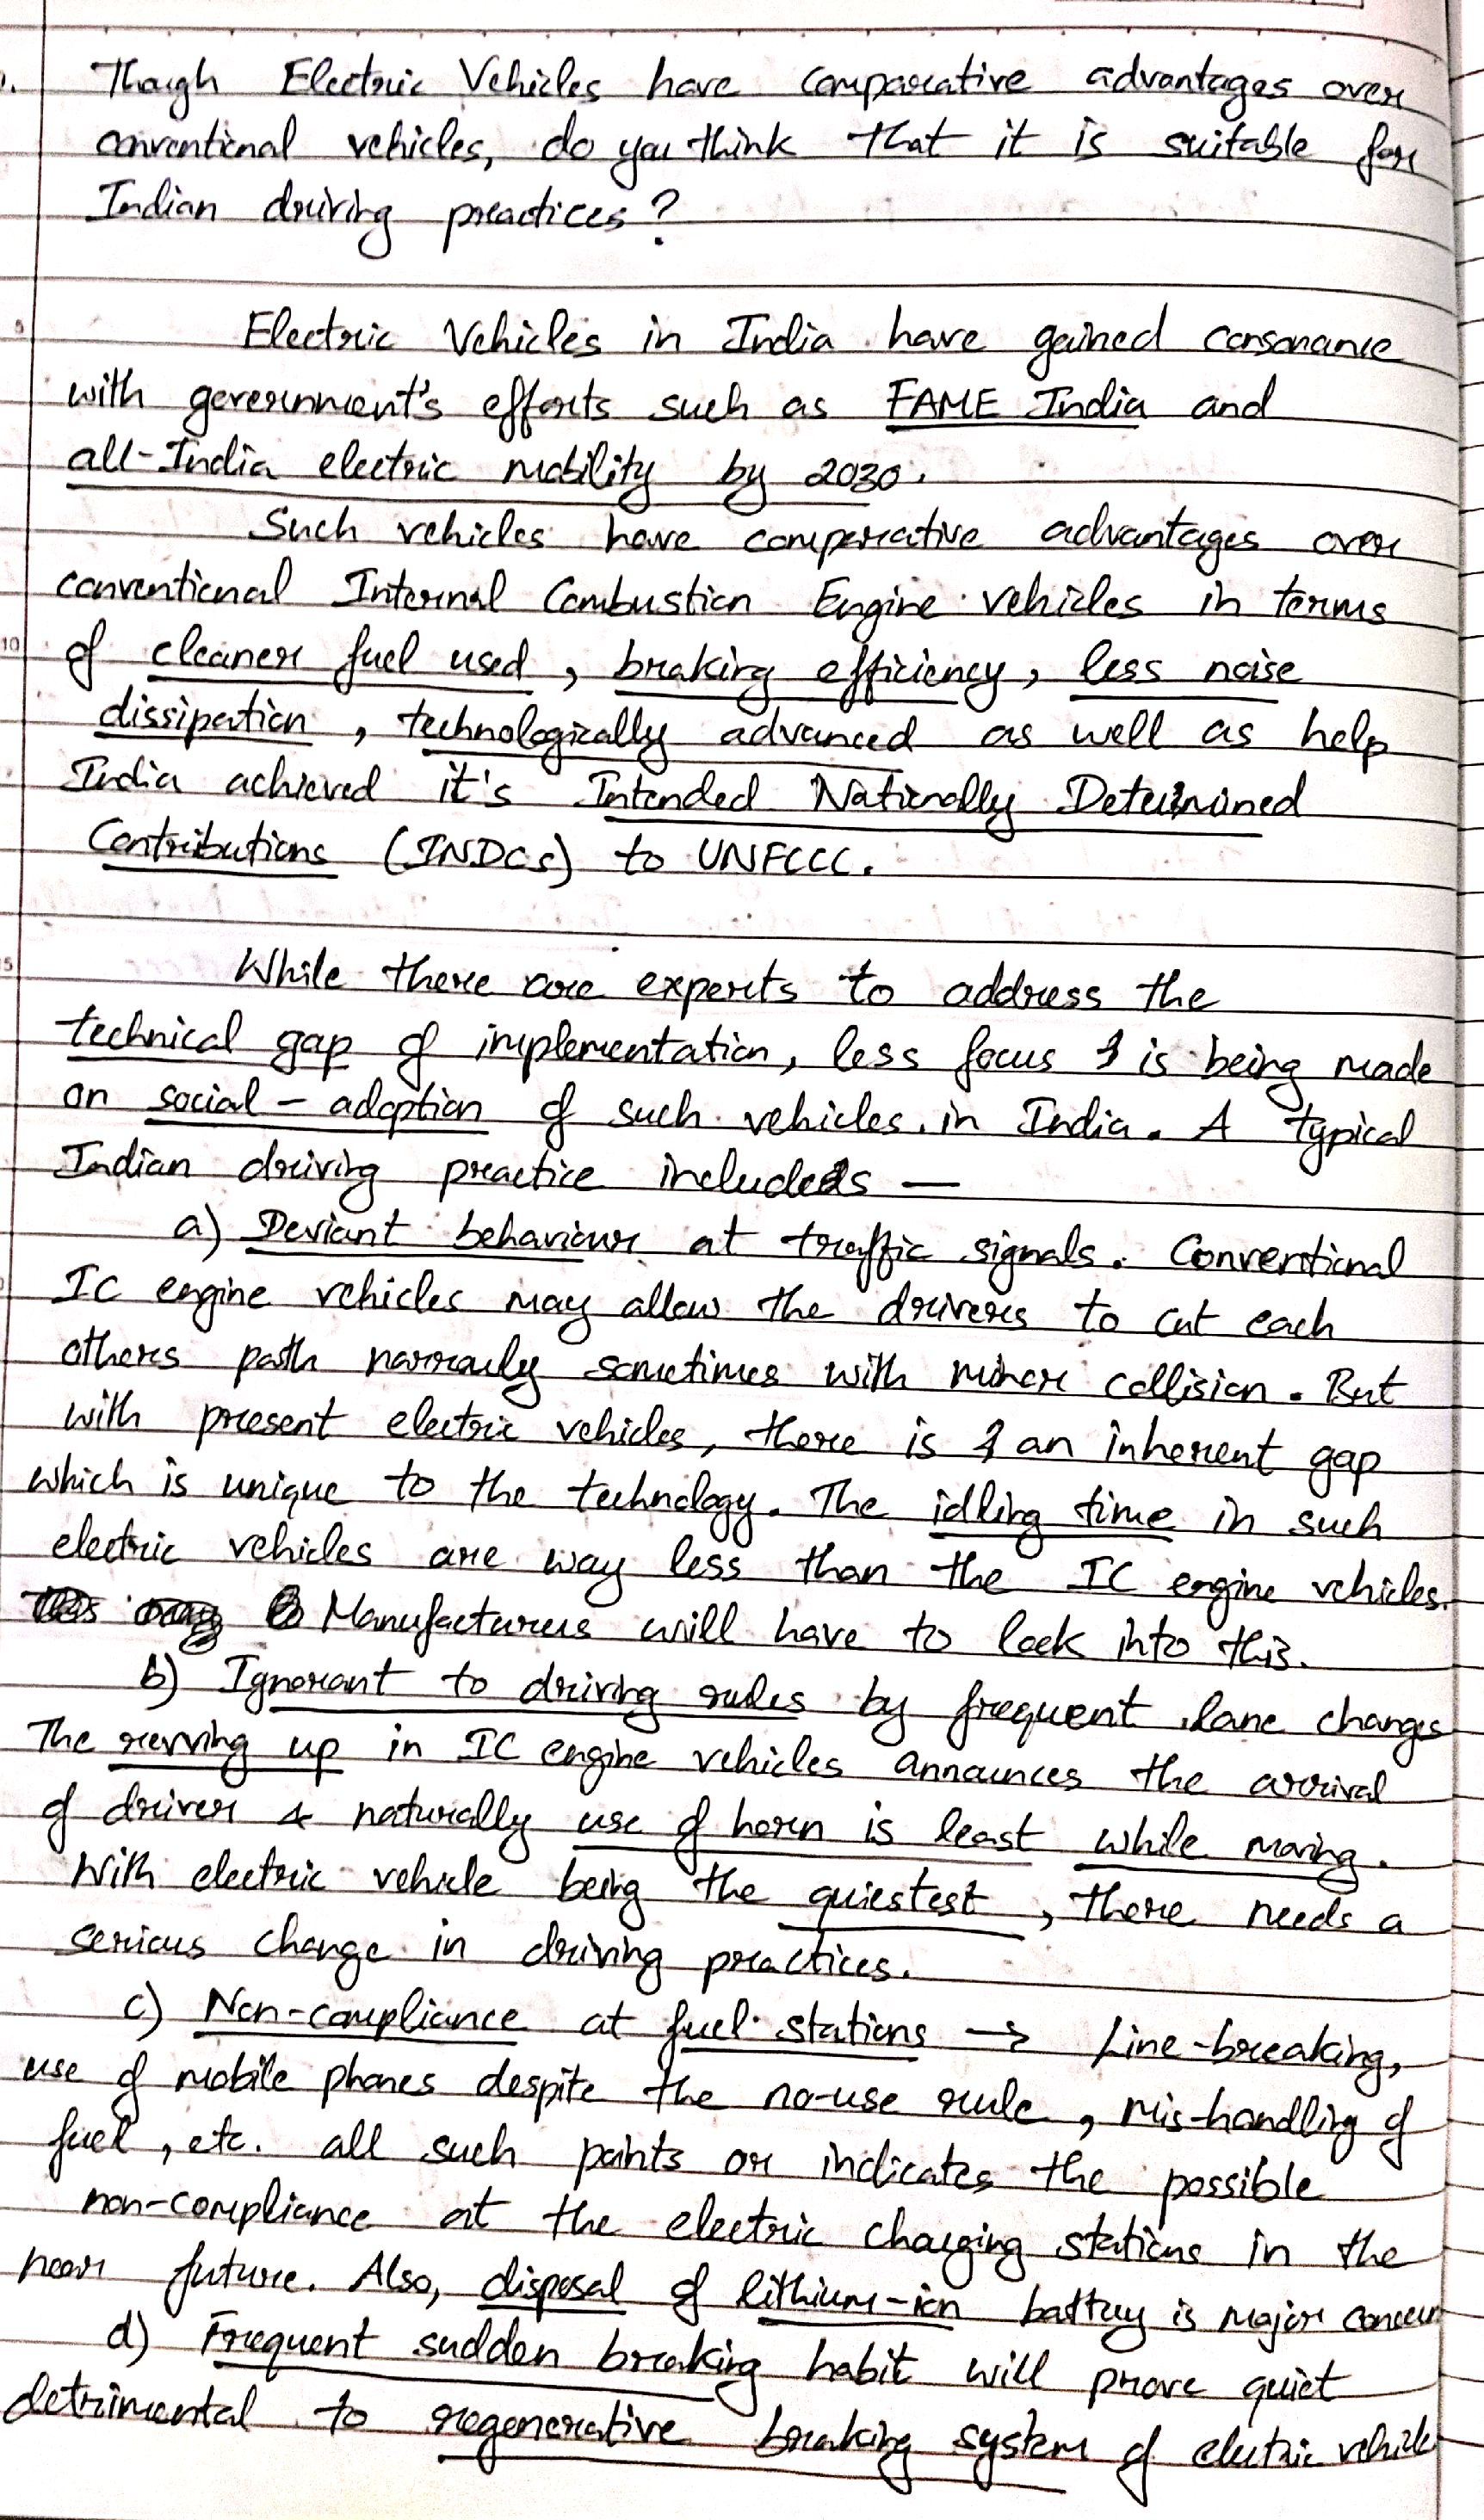 1. Though Electric Vehicles have comparative advantages over
conventional vehicles, do you think that it is suitable for
Indian driving practices?
Electric Vehicles in India have gained consonance
with government's efforts such as FAME India and
all-India electric mobility by 2030.
Such vehicles have comparative advantages over
conventional Internal Combustion Engine vehicles in terms
of cleaner fuel used, braking efficiency, less noise
dissipation, technologically advanced as well as help
India achieved it's Intended Nationally Determined
Contributions (INDCs) to UNFCCC.
While there are experts to address the
technical gap of implementation, less focus is being made
on social-adoption of such vehicles in India. A typical
Indian driving practice includes —
a) Deviant behaviour at traffic signals. Conventional
IC engine vehicles may allow the drivers to cut each
others path narrowly sometimes with minor collision. But
with present electric vehicles, there is an inherent gap
which is unique to the technology. The idling time in such
electric vehicles are way less than the IC engine vehicles.
Manufacturers will have to look into this.
b) Ignorant to driving rules by frequent lane changes
The revving up in IC engine vehicles announces the arrival
of driver & naturally use of horn is least while moving.
With electric vehicle being the quiestest, there needs a
serious change in driving practices.
c) Non-compliance at fuel stations → Line-breaking,
use of mobile phones despite the no-use rule, mis-handling of
fuel, etc. all such points or indicates the possible
non-compliance at the electric charging stations in the
near future. Also, disposal of lithium-ion battery is major concern
d) Frequent sudden breaking habit will prove quiet
detrimental to regenerative breaking system of electric vehicle